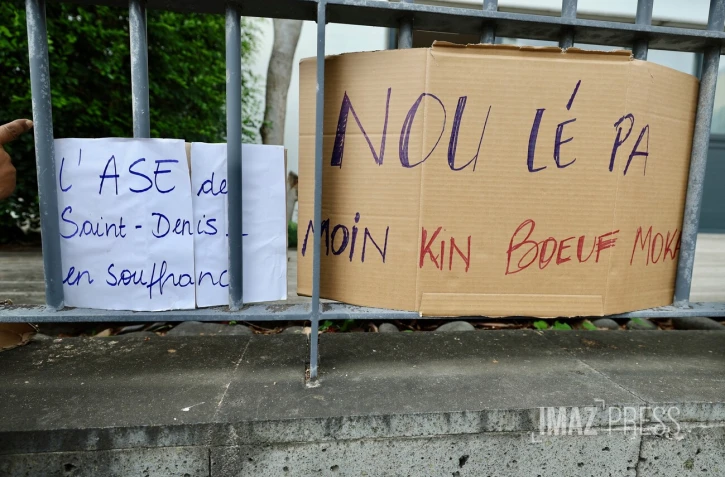 L'ASE de
Saint-Denis
en souffranc
NOU LÉ PA
MOIN KIN BOEUF MOKA
IMAZ PRESS